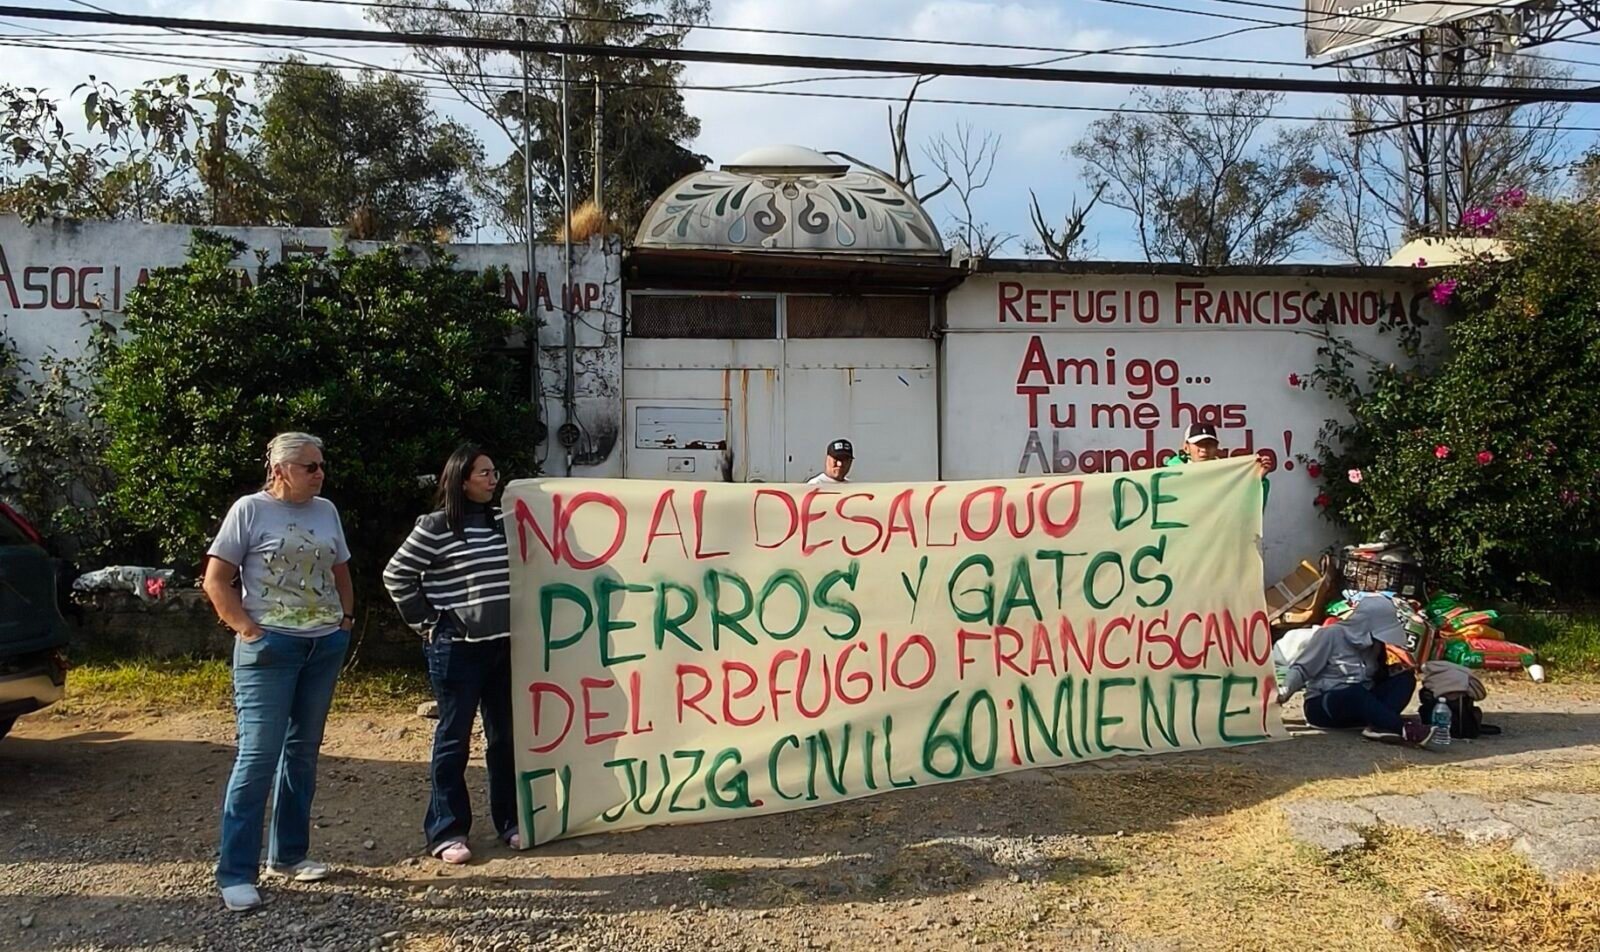 NA IAP
REFUGIO FRANCISCANO AC
Amigo...
Tu me has
Abandonado!
NO AL DESALOJO DE
PERROS Y GATOS
DEL REFUGIO FRANCISCANO
EL JUZG. CIVIL 60 ¡MIENTE!